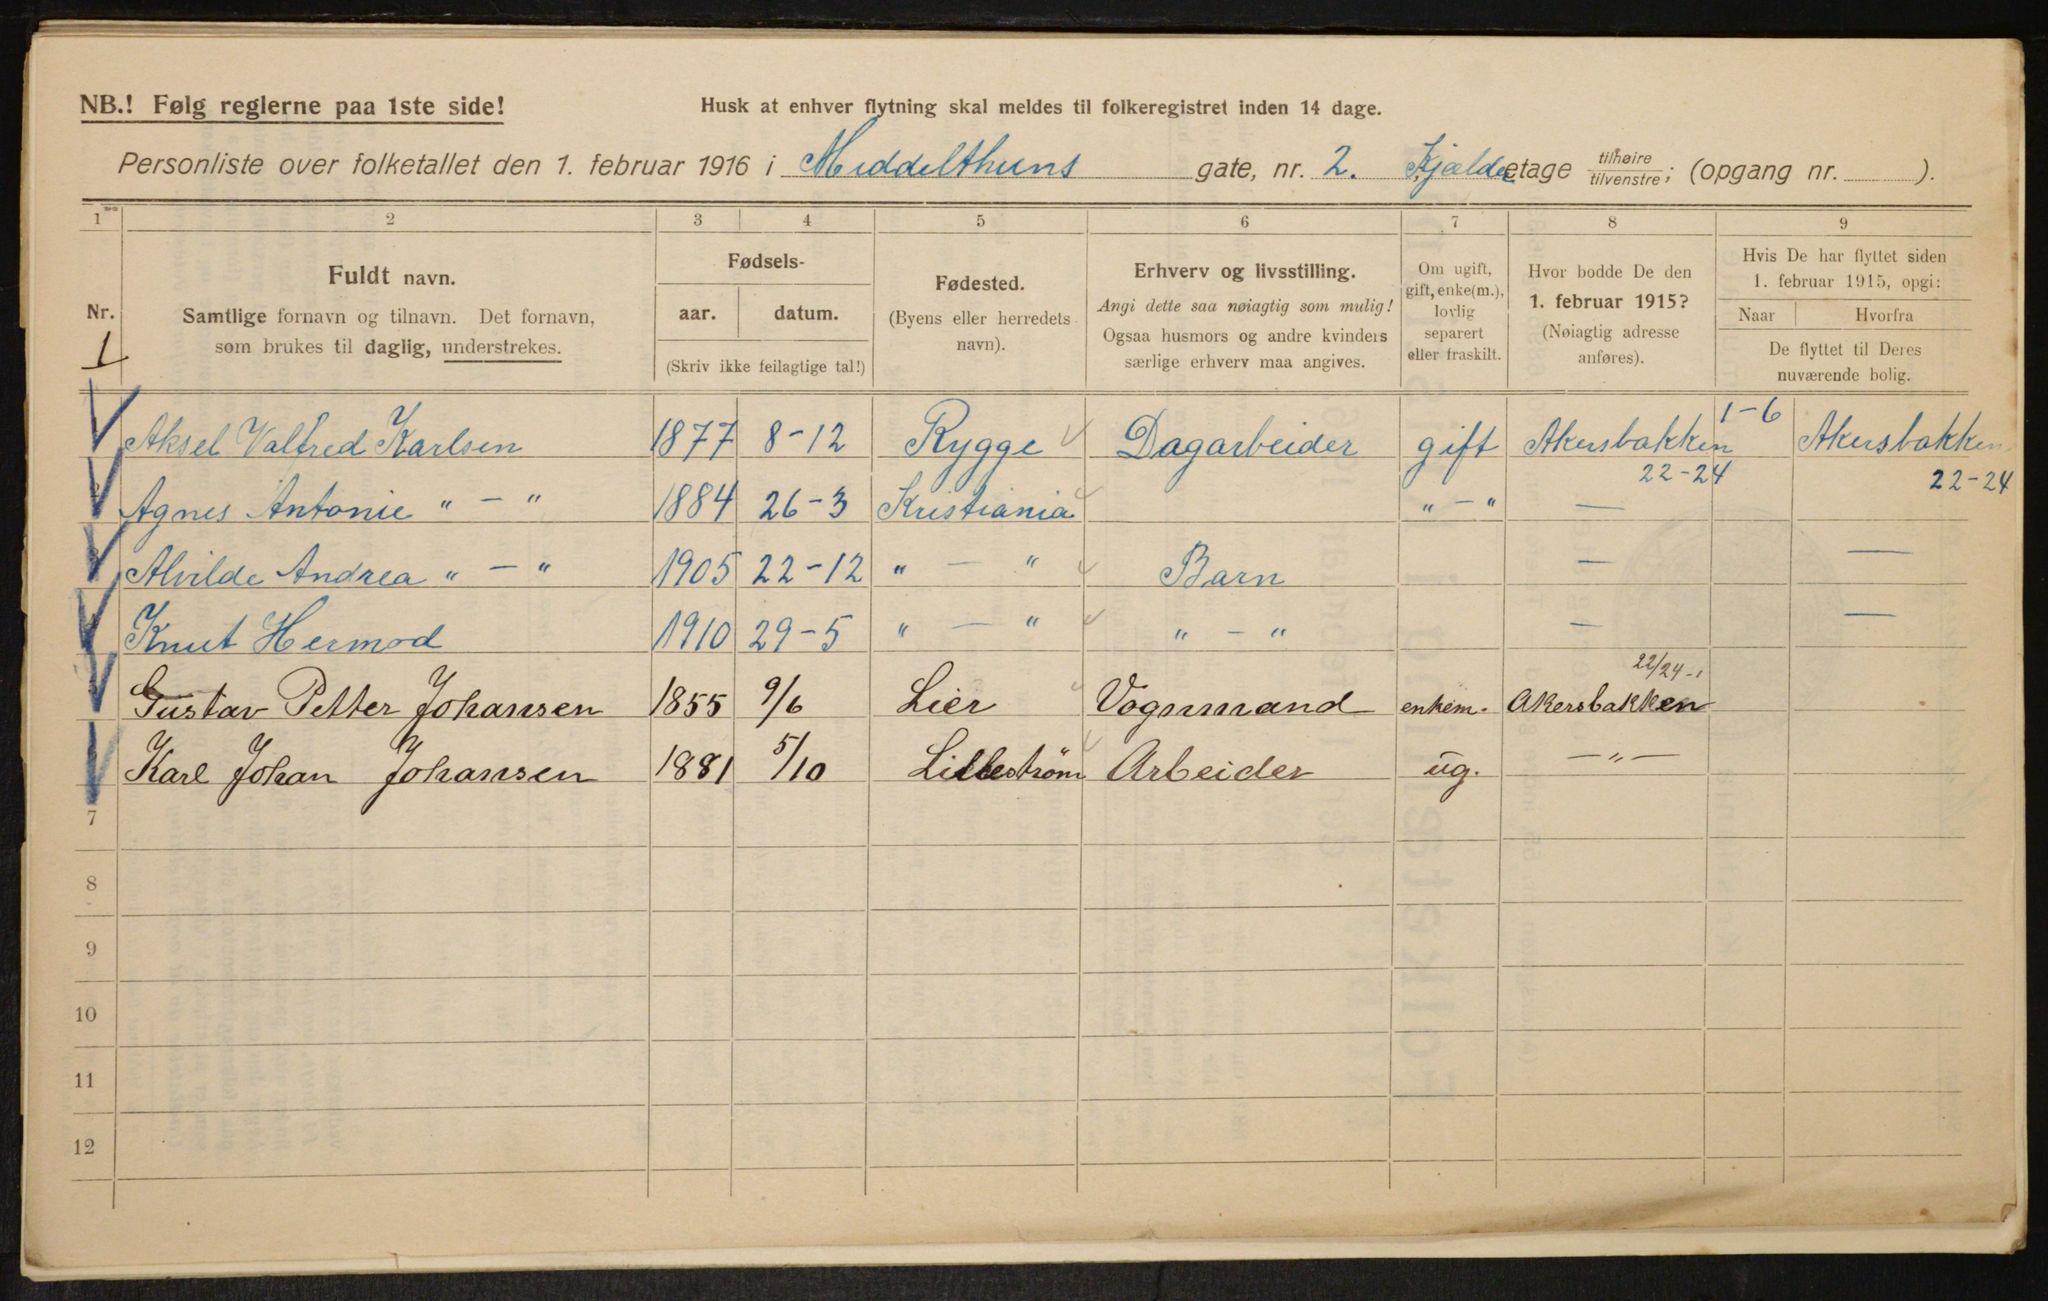 NB.! Følg reglerne paa 1ste side!
Husk at enhver flytning skal meldes til folkeregistret inden 14 dage.
Personliste over folketallet den 1. februar 1916 i Middelthuns gate, nr. 2. Kjælder etage tilhøire/tilvenstre; (opgang nr. ).
1 2 3 4 5 6 7 8 9
Nr.
1
Fuldt navn.
Samtlige fornavn og tilnavn. Det fornavn,
som brukes til daglig, understrekes.
Fødsels-
aar. datum.
(Skriv ikke feilagtige tal!)
Fødested.
(Byens eller herredets
navn).
Erhverv og livsstilling.
Angi dette saa nøiagtig som mulig!
Ogsaa husmors og andre kvinders
særlige erhverv maa angives.
Om ugift,
gift, enke(m.),
lovlig
separert
eller fraskilt.
Hvor bodde De den
1. februar 1915?
(Nøiagtig adresse
anføres).
Hvis De har flyttet siden
1. februar 1915, opgi:
Naar Hvorfra
De flyttet til Deres
nuværende bolig.
Aksel Valfred Karlsen 1877 8-12 Rygge Dagarbeider gift Akersbakken 22-24 1-6 Akersbakken 22-24
Agnes Antonie " — " 1884 26-3 Kristiania " — " —
Alvilde Andrea " — " 1905 22-12 " — " Barn — —
Knut Hermod 1910 29-5 " — " " — " — —
Gustav Petter Johansen 1855 9/6 Lier Vognmand enkem. Akersbakken 22/24
Karl Johan Johansen 1881 5/10 Lillestrøm Arbeider ug. — " —
7
8
9
10
11
12